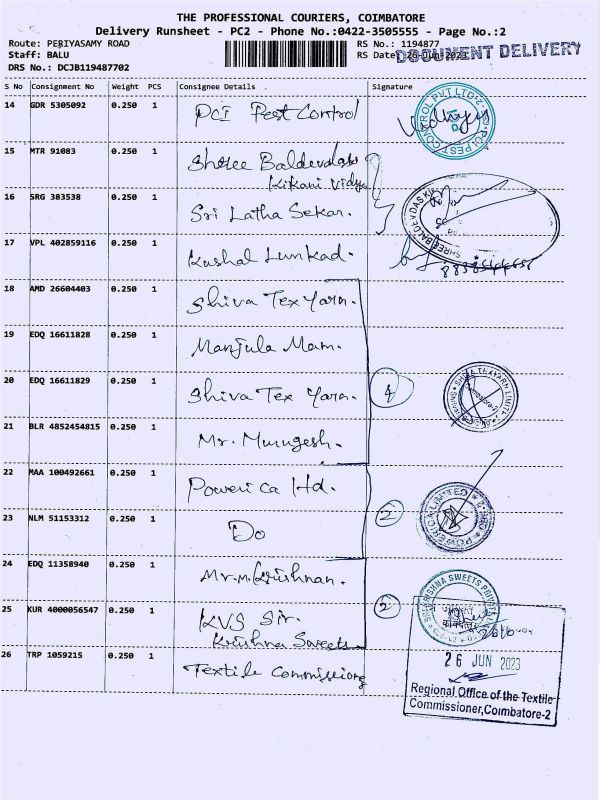 THE PROFESSIONAL COURIERS, COIMBATORE
Delivery Runsheet - PC2 - Phone No.:0422-3505555 - Page No.:2
Route: PERIYASAMY ROAD
RS No.: 1194877
Staff: BALU
RS Date: 26-Jun-2023
DOCUMENT DELIVERY
DRS No.: DCJB119487702
S No Consignment No Weight PCS Consignee Details Signature
14 GDR 5305092 0.250 1 PCI Pest Control
15 MTR 91083 0.250 1 Shree Baldevdas
Kikani Vidya
16 SRG 383538 0.250 1 Sri Latha Sekar.
17 VPL 402859116 0.250 1 Kushal Lunkad.
18 AMD 26604403 0.250 1 Shiva Tex Yarn.
19 EDQ 16611828 0.250 1 Manjula Mam.
20 EDQ 16611829 0.250 1 Shiva Tex Yarn. 4
21 BLR 4852454815 0.250 1 Mr. Murugesh.
22 MAA 100492661 0.250 1 Powerica Ltd.
23 NLM 51153312 0.250 1 Do 2
POWERICA LIMITED
24 EDQ 11358940 0.250 1 Mr.M.Krishnan.
25 KUR 4000056547 0.250 1 KVS Sir.
Krishna Sweets
26 TRP 1059215 0.250 1 Textile Commissiong
26 JUN 2023
Regional Office of the Textile
Commissioner,Coimbatore-2